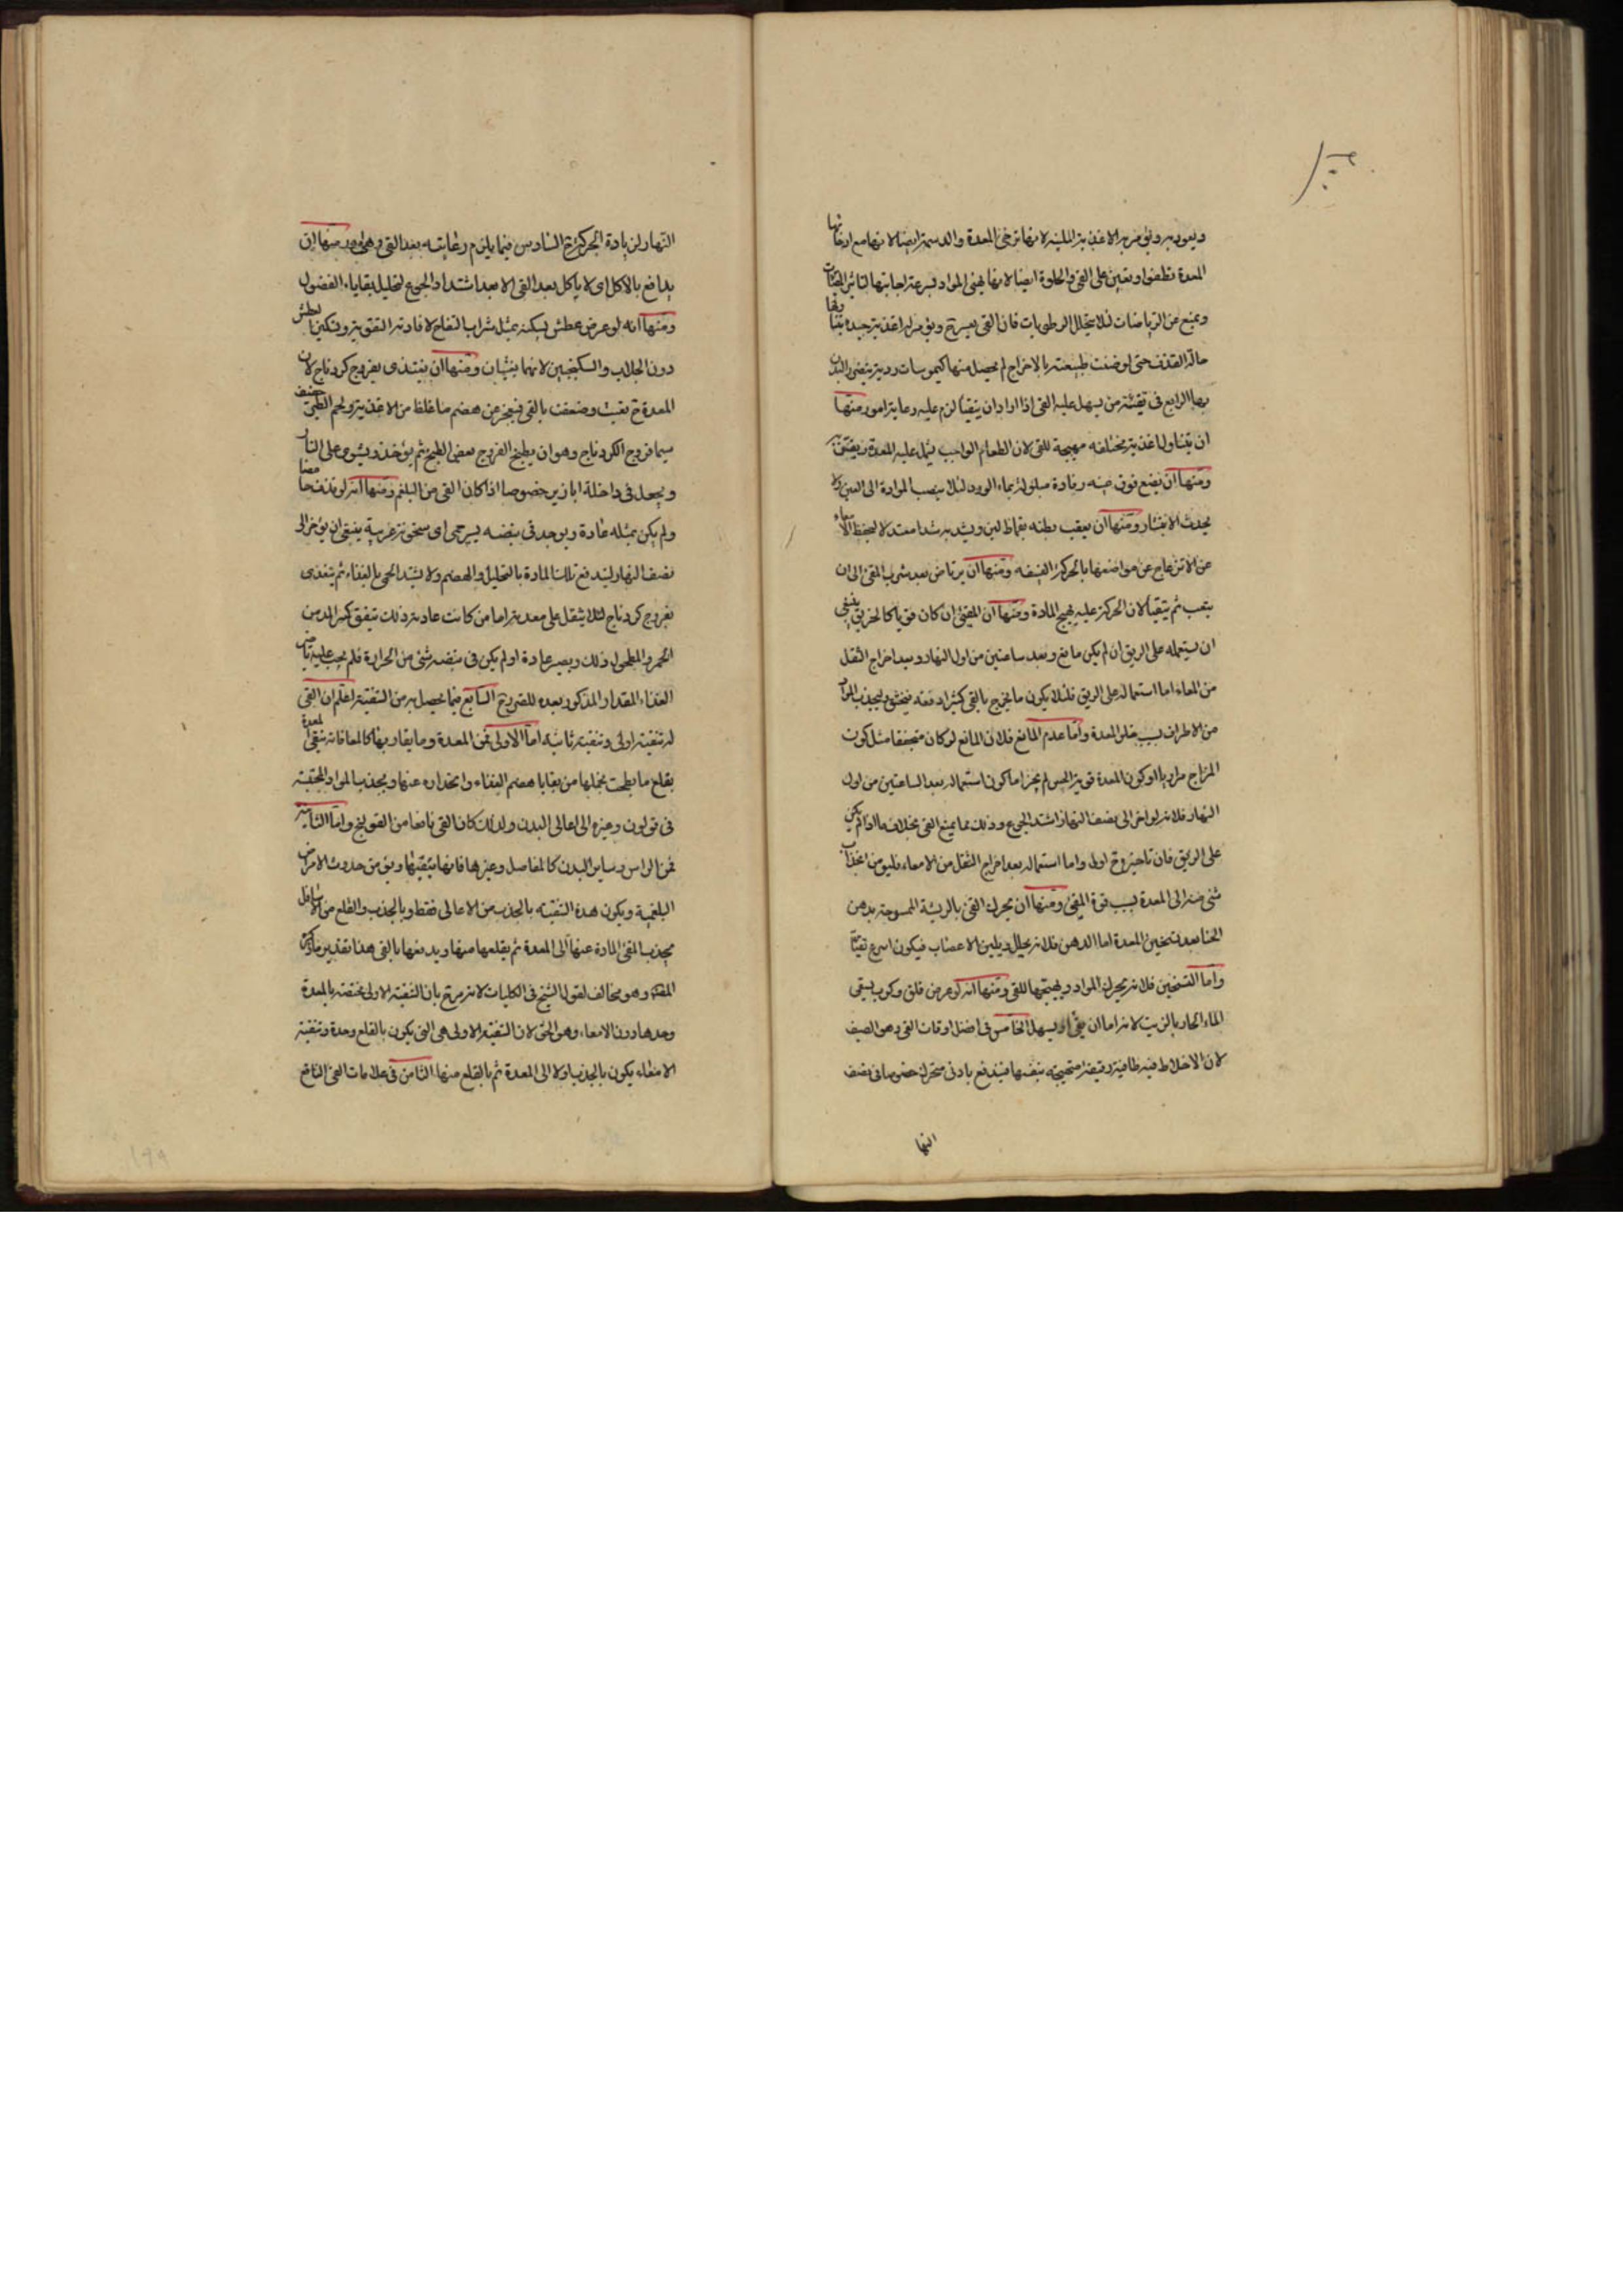 ويعود به ويؤمر بالاغذية اللينة لانها ترخى المعدة والدسمة ايضا لانها مع ارخائها
المعدة تطفوا وتعين على القئ والحلوة ايضا لانها يهئ المواد لسرعة اجابتها لتأثير المقيئات
ويمنع عن الرياضات لئلا يتحلل الرطوبات فان القئ يعسر ح ويؤمر له اغذية جيدة يتناولها
حالة القذف حتى لو ضنت طبيعته بالاخراج لم يحصل منها كيموسات ردية يضر البدن
بها الرابع فى تقيئة من يسهل عليه القئ اذا اراد ان يتقيأ لزم عليه رعاية امور منها
ان يتناول اغذية مختلفة مهيجة للقئ لان الطعام الواحب يثمل عليه المعدة ويضن به
ومنها ان يضع فوق عينه رفادة مبلولة بماء الورد لئلا ينصب المادة الى العين ولا
يحدث الانتشار ومنها ان يعقب بطنه بقماط لين ويشد به شدا معتدلا ليحفظ الامعاء
عن الانزعاج عن مواضعها بالحركة العنيفة ومنها ان يرتاض بعد شرب المقئ الى ان
يتعب ثم يتقيأ لان الحركة عليه يهيج المادة ومنها ان المقئ ان كان قويا كالخربق ينبغى
ان يستعمله على الريق ان لم يكن مانع وبعد ساعتين من اول النهار وبعد اخراج الثفل
من المعاء اما استعماله على الريق فلئلا يكون ما يخرج بالقئ كثيرا دفعة فيخنق وليجذب المواد
من الاطراف بسبب خلو المعدة واما عدم المانع فلان المانع لو كان متحققا مثل كون
المزاج مراريا او كون المعدة قوية الحس لم يجز اما كون استعماله بعد الساعتين من اول
النهار فلانه لو اخر الى نصف النهار اشتد الجوع وذلك مما يمنع القئ بخلاف ما اذا لم يكن
على الريق فان تاخيره ح اولى واما استعماله بعد اخراج الثفل من الامعاء فليؤمن انجذاب
شئ منه الى المعدة بسبب قوة المقئ ومنها ان يحرك القئ بالريشة الممسوحة بدهن
الحنا بعد تسخين المعدة اما الدهن فلانه يحلل ويلين الاعصاب فيكون اسرع تقيئا
واما التسخين فلانه يحرك المواد ويهيجها للقئ ومنها انه لو عرض قلق وكرب يسقى
الماء الحار بالزيت لانه اما ان يقئ او يسهل الخامس فى افضل اوقات القئ وهو الصيف
لان الاخلاط فيه طافية رقيقة متهيجة بنفسها فيندفع بادنى متحرك خصوصا فى نصف
النها
النهار لزيادة الحركة ح السادس فيما يلزم رعايته بعد القئ وهى امور منها ان
يدافع بالاكل اى لا ياكل بعد القئ الا بعد اشتداد الجوع لتحليل بقاياء الفضول
ومنها انه لو عرض عطش يسكنه بمثل شراب التفاح لافادته التقوية وتسكين العطش
دون الجلاب والسكنجبين لانهما يغثيان ومنها ان يتغذى بفروج كردناج لان
المعدة ح تعبت وضعفت بالقئ فيعجز عن هضم ما غلظ من الاغذية ولحم الطير خفيف
سيما فروج الكردناج وهو ان يطبخ الفروج بعض الطبخ ثم يؤخذ ويشوى على النار
ويجعل فى داخله ابازير خصوصا اذا كان القئ من البلغم ومنها انه لو قذف حامضا
ولم يكن بمثله عادة ويوجد فى نبضه يسير حمى اى سخونة غريبة ينبغى ان يؤخر الى
نصف النهار ليندفع تلك المادة بالتحليل والهضم ولا يشتد الحمى بالغذاء ثم يتغذى
بفروج كردناج لئلا يثقل على معدته اما من كانت عادته ذلك يتفق كثيرا لمدمن
الخمر والمطحول ذلك ويصير عادة او لم يكن فى نبضه شئ من الحرارة فلم يجب عليه تاخير
الغذاء المقدار المذكور بعده للضرورة السابع فيما يحصل به من التنقية اعلم ان القئ
له تنقية اولى وتنقية ثانية اما الاولى فمن المعدة وما يقاربها كالمعا فانه ينقى المعدة
بقلع ما يلحت بخملها من بقايا هضم الغذاء وانحداره عنها ويجذب المواد المحتبسة
فى قولون وغيره الى اعالى البدن ولذلك كان القئ نافعا من القولنج واما الثانية
فمن الراس وساير البدن كالمفاصل وغيرها فانها ينقيها ويؤمن حدوث الامراض
البلغمية ويكون هذه التنقية بالجذب من الاعالى فقط وبالجذب والقلع من الاسافل
يجذب المقئ المادة عنها الى المعدة ثم يقلعها منها ويدفعها بالقئ هذا تقدير ما ذكره
المص وهو مخالف لقول الشيخ فى الكليات لانه صرح بان التنقية الاولى مختصة بالمعدة
وحدها دون الامعاء وهو الحق لان التنقية الاولى هى التى يكون بالقلع وحده وتنقية
الامعاء يكون بالجذب اولا الى المعدة ثم بالقلع منها الثامن فى علامات القئ النافع
١٩٩